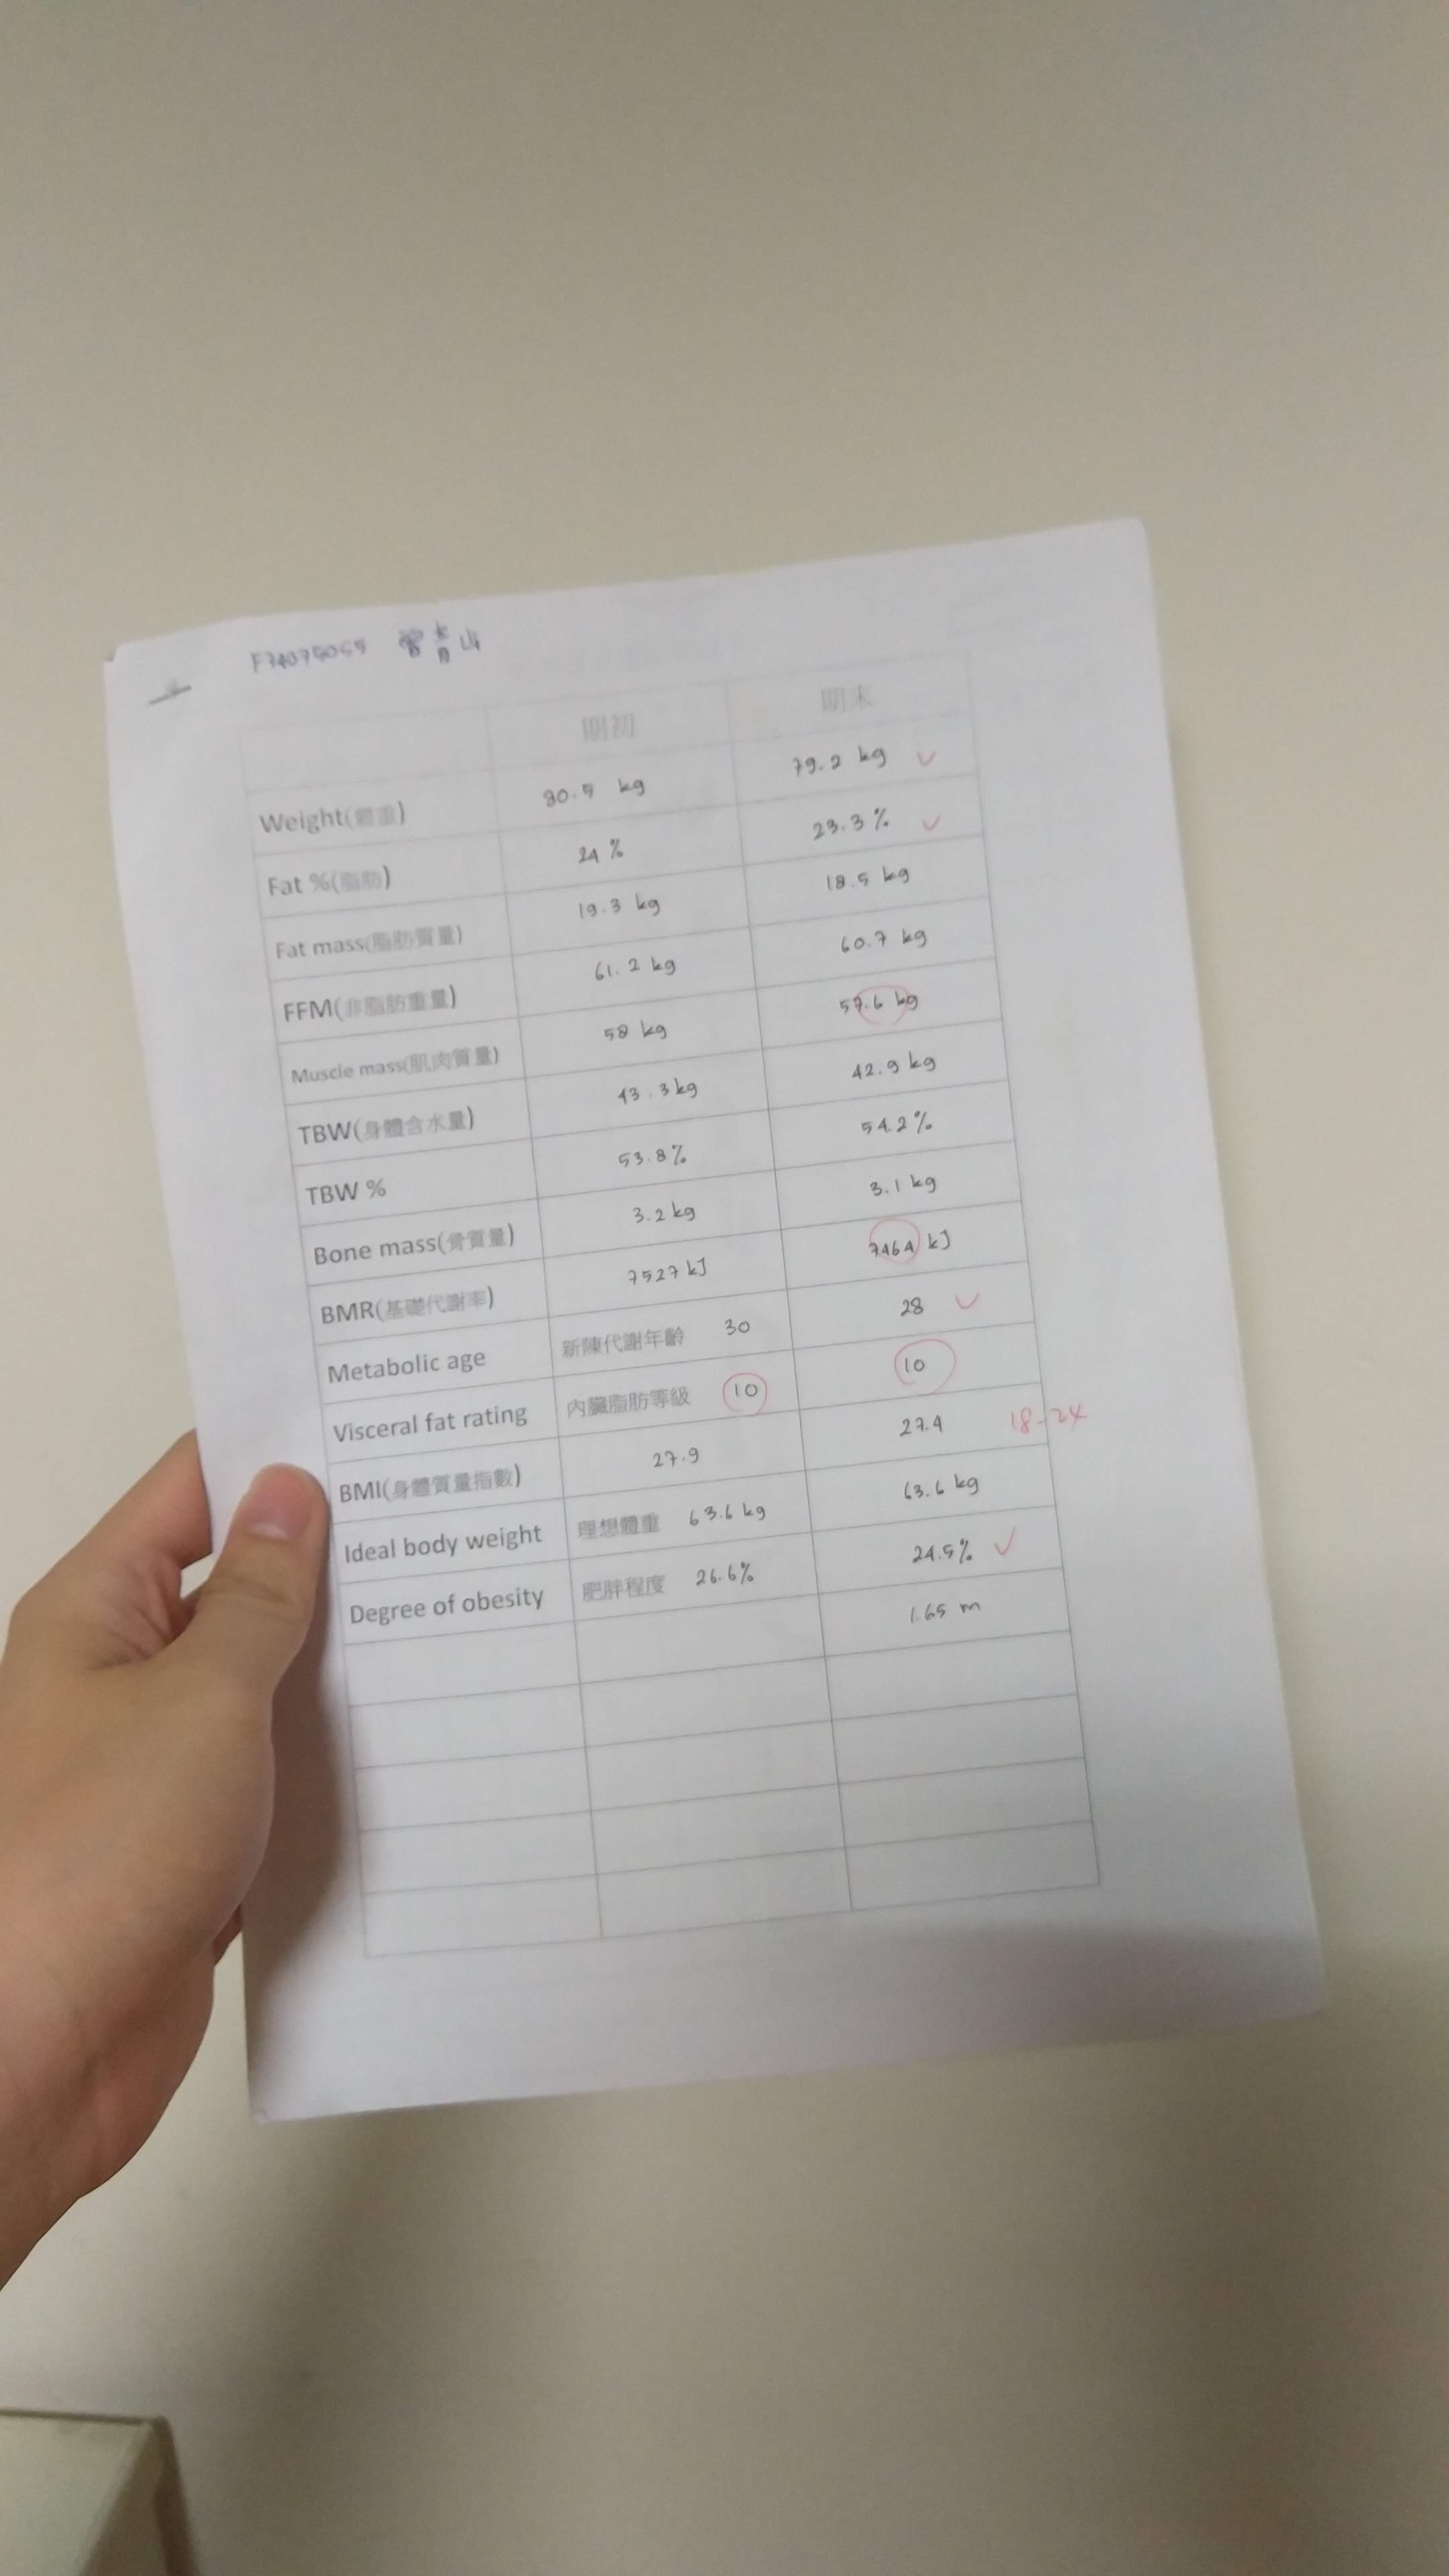 F74075065
期初 期末
Weight(體重) 80.5 kg 79.2 kg
Fat %(脂肪) 24 % 23.3 %
Fat mass(脂肪質量) 19.3 kg 18.5 kg
FFM(非脂肪重量) 61.2 kg 60.7 kg
Muscle mass(肌肉質量) 58 kg 57.6 kg
TBW(身體含水量) 43.3 kg 42.9 kg
TBW % 53.8% 54.2%
Bone mass(骨質量) 3.2 kg 3.1 kg
BMR(基礎代謝率) 7527 kJ 7464 kJ
Metabolic age 新陳代謝年齡 30 28
Visceral fat rating 內臟脂肪等級 10 10
BMI(身體質量指數) 27.9 27.4 18-24
Ideal body weight 理想體重 63.6 kg 63.6 kg
Degree of obesity 肥胖程度 26.6% 24.5%
1.65 m